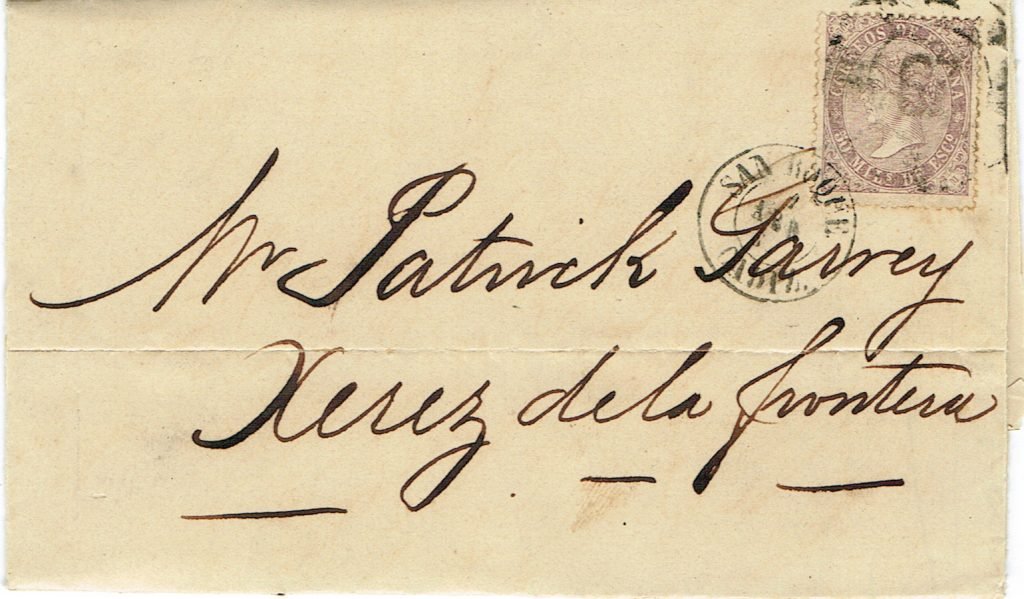 CORREOS DE ESPAÑA
50 MILS DE ESCO
SAN ROQUE
CADIZ
Mr Patrick Garvey
Xerez de la frontera